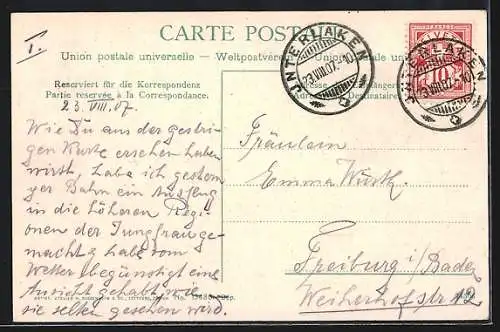 CARTE POSTALE
Union postale universelle – Weltpostverein – Unione postale universale
I.
INTERLAKEN
23.VIII.07.-10
HELVETIA
10
INTERLAKEN
23.VIII.07.-10
Reserviert für die Korrespondenz
Partie réservée à la Correspondance.
23. VIII. 07.
Wie Du aus der gestri-
gen Karte ersehen haben
wirst, habe ich gestern
per Bahn ein Ausflug
in die höheren Regi-
onen der Jungfrau ge-
macht & habe vom
Wetter begünstigt eine
Ansicht gehabt, wie
sie selten gesehen wird.
Fräulein
Emma Wurth
Freiburg i/Baden
Weiherhofstr 12